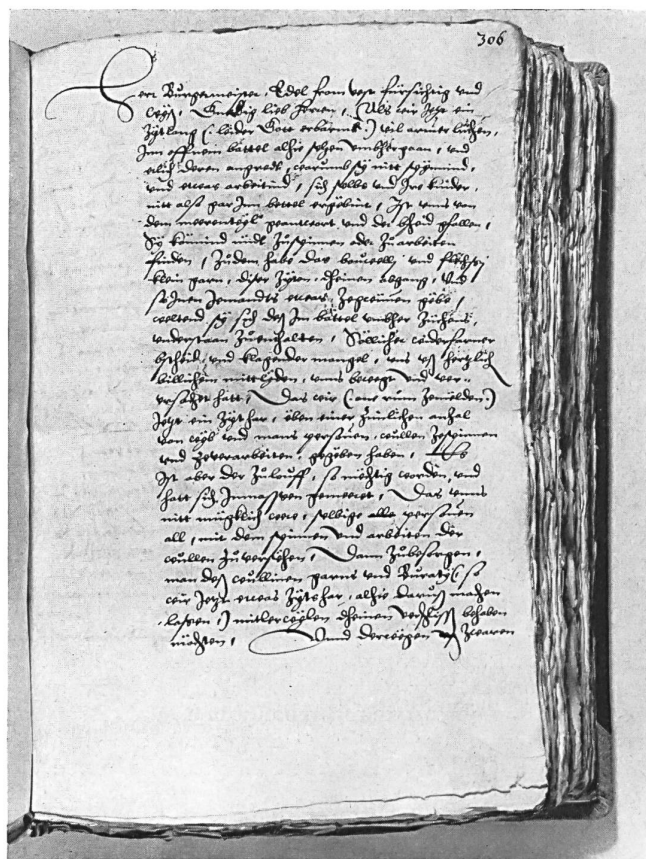 306
Herr Burgermeister, Edel from vest fürsichtig und
wyß, Gnedig lieb Herren, Als wir Jetz ein
Zytlang (: leider Gott erbarms :) vil armer lüthen,
Jnn offnem bättel alhie sehen umbhergaan, und
etlich deren angredt, warumb sy nitt spynnind,
und etwas arbeitind, sich selbs und Jre kinder,
nitt also gar Jm bettel
dem meerentheyl geantwort und der bscheid gfallen,
Sy könnind nüdt Zuspinnen oder Zu arbeiten
finden, Zudem habe das bouwelly und
klein garn, diser Zyten, dheinen abgang, Und
so Jnen Jemandts etwas Zespinnen gebe,
welltend sy sich deß Jm bättel umbher Züchens,
understaan Zuenthalten, Söllicher
bscheid, und klagender mangel, uns uß hertzlich
billichem mittlyden, uns bewegt und ver-
ursachet hatt, Das wir (: one rum Zemelden :)
Jetzt ein Zythar, eben einer Zimlichen anzal
von wyb und mans personen, wullen Zespinnen
und Zeverarbeiten, gegeben haben, Es
Jst aber der Zulouff, so mächtig worden, und
hatt sich Jnmassen gemeeret, Das unns
nitt mügklich were, sölliche alle personen
all, mit dem spinnen und arbeiten der
wullen Zuversehen, Dann Zubesorgen,
man deß wullinen garns und Buraths (: so
wir Jetzt etwas Zythar, alhie daruß machen
lassen :) mitlerwylen dheinen verschliß behaben
möchten, Unnd derwegen Zwaren